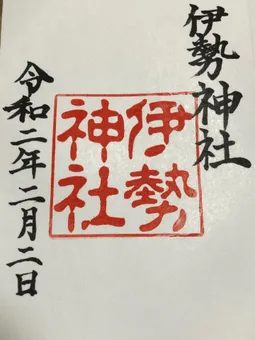 伊勢神社
伊勢
神社
令和二年二月二日